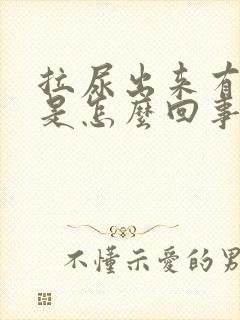 拉尿出来有
是怎麼回事
不懂示愛的男